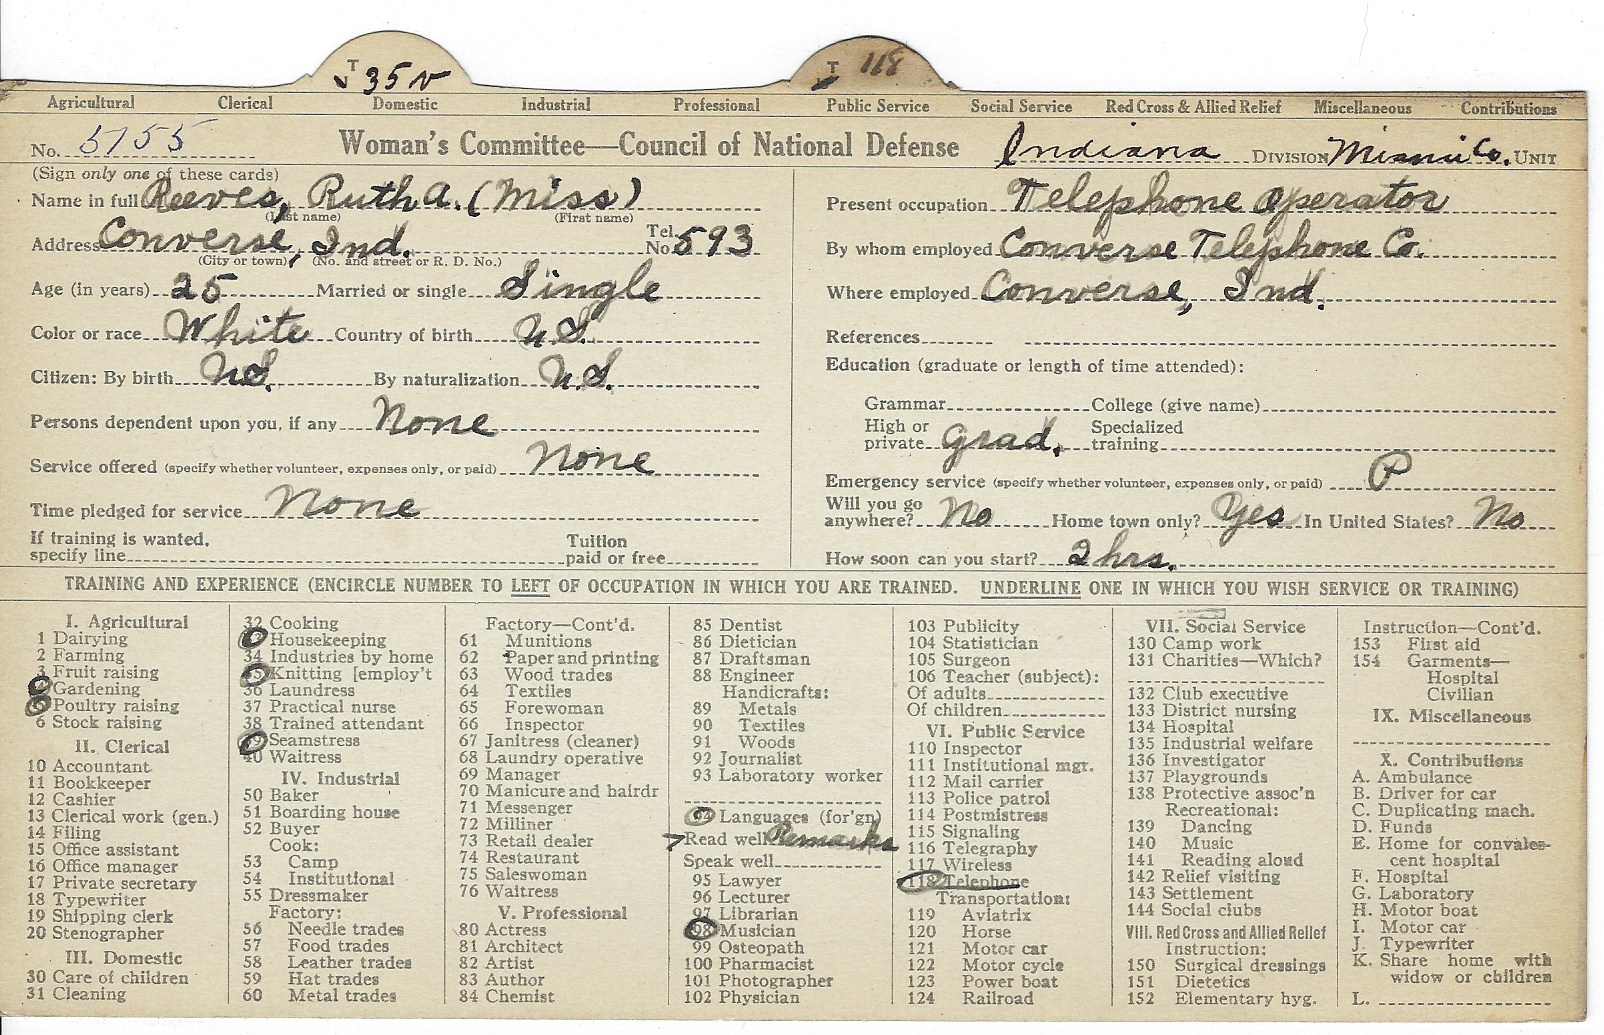 T 35 v
T 118
Agricultural Clerical Domestic Industrial Professional Public Service Social Service Red Cross & Allied Relief Miscellaneous Contributions
No. 5755 Woman's Committee—Council of National Defense Indiana DIVISION Miami Co. UNIT
(Sign only one of these cards)
Name in full Reeves, Ruth A. (Miss)
(Last name) (First name)
Address Converse, Ind. Tel. No 593
(City or town) (No. and street or R. D. No.)
Age (in years) 25 Married or single Single
Color or race White Country of birth U.S.
Citizen: By birth U.S. By naturalization U.S.
Persons dependent upon you, if any None
Service offered (specify whether volunteer, expenses only, or paid) None
Time pledged for service None
If training is wanted, specify line Tuition paid or free
Present occupation Telephone Operator
By whom employed Converse Telephone Co.
Where employed Converse, Ind.
References
Education (graduate or length of time attended):
Grammar College (give name)
High or private Grad. Specialized training
Emergency service (specify whether volunteer, expenses only, or paid) P
Will you go anywhere? No Home town only? Yes In United States? No
How soon can you start? 2 hrs.
TRAINING AND EXPERIENCE (ENCIRCLE NUMBER TO LEFT OF OCCUPATION IN WHICH YOU ARE TRAINED. UNDERLINE ONE IN WHICH YOU WISH SERVICE OR TRAINING)
I. Agricultural
1 Dairying
2 Farming
3 Fruit raising
4 Gardening
5 Poultry raising
6 Stock raising
II. Clerical
10 Accountant
11 Bookkeeper
12 Cashier
13 Clerical work (gen.)
14 Filing
15 Office assistant
16 Office manager
17 Private secretary
18 Typewriter
19 Shipping clerk
20 Stenographer
III. Domestic
30 Care of children
31 Cleaning
32 Cooking
33 Housekeeping
34 Industries by home
35 Knitting [employ't
36 Laundress
37 Practical nurse
38 Trained attendant
39 Seamstress
40 Waitress
IV. Industrial
50 Baker
51 Boarding house
52 Buyer
Cook:
53 Camp
54 Institutional
55 Dressmaker
Factory:
56 Needle trades
57 Food trades
58 Leather trades
59 Hat trades
60 Metal trades
Factory—Cont'd.
61 Munitions
62 Paper and printing
63 Wood trades
64 Textiles
65 Forewoman
66 Inspector
67 Janitress (cleaner)
68 Laundry operative
69 Manager
70 Manicure and hairdr
71 Messenger
72 Milliner
73 Retail dealer
74 Restaurant
75 Saleswoman
76 Waitress
V. Professional
80 Actress
81 Architect
82 Artist
83 Author
84 Chemist
85 Dentist
86 Dietician
87 Draftsman
88 Engineer
Handicrafts:
89 Metals
90 Textiles
91 Woods
92 Journalist
93 Laboratory worker
94 Languages (for'gn)
Read well Remarks
Speak well
95 Lawyer
96 Lecturer
97 Librarian
98 Musician
99 Osteopath
100 Pharmacist
101 Photographer
102 Physician
103 Publicity
104 Statistician
105 Surgeon
106 Teacher (subject):
Of adults
Of children
VI. Public Service
110 Inspector
111 Institutional mgr.
112 Mail carrier
113 Police patrol
114 Postmistress
115 Signaling
116 Telegraphy
117 Wireless
118 Telephone
Transportation:
119 Aviatrix
120 Horse
121 Motor car
122 Motor cycle
123 Power boat
124 Railroad
VII. Social Service
130 Camp work
131 Charities—Which?
132 Club executive
133 District nursing
134 Hospital
135 Industrial welfare
136 Investigator
137 Playgrounds
138 Protective assoc'n
Recreational:
139 Dancing
140 Music
141 Reading aloud
142 Relief visiting
143 Settlement
144 Social clubs
VIII. Red Cross and Allied Relief
Instruction:
150 Surgical dressings
151 Dietetics
152 Elementary hyg.
Instruction—Cont'd.
153 First aid
154 Garments—
Hospital
Civilian
IX. Miscellaneous
X. Contributions
A. Ambulance
B. Driver for car
C. Duplicating mach.
D. Funds
E. Home for convales-
cent hospital
F. Hospital
G. Laboratory
H. Motor boat
I. Motor car
J. Typewriter
K. Share home with
widow or children
L.